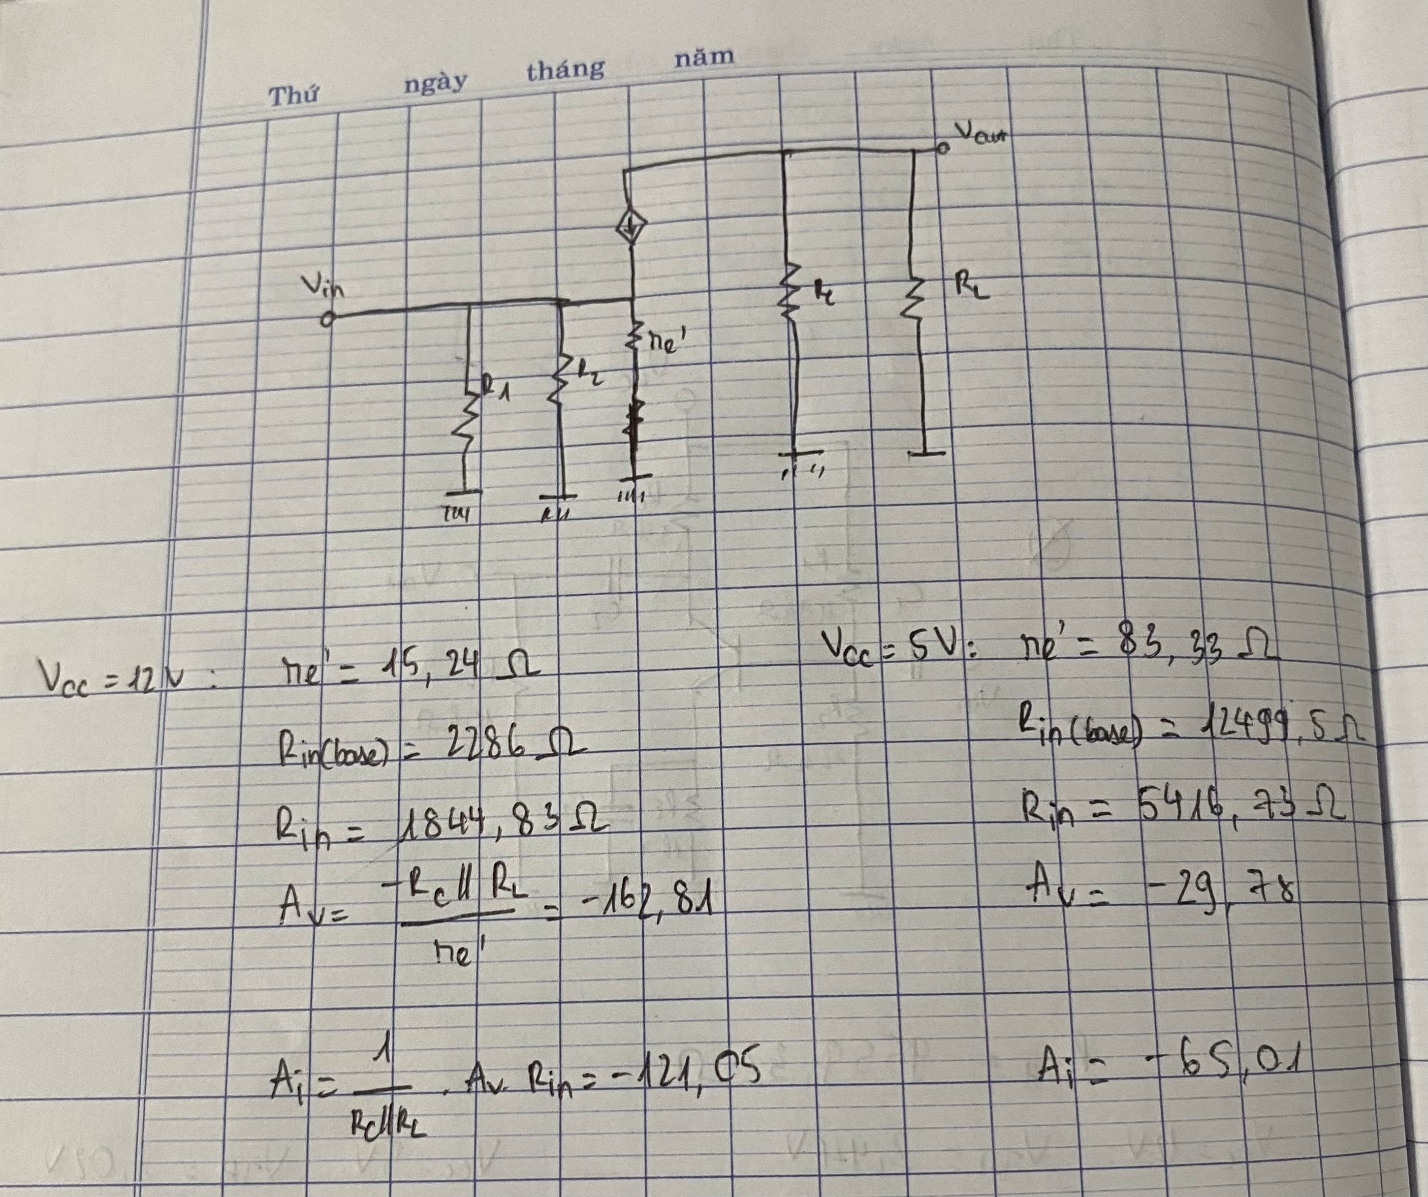 Thứ ngày tháng năm
Vout
Vin
R1
R2
re'
Rc
RL
Vcc = 12V :
re' = 15,24 Ω
Rin(base) = 2286 Ω
Rin = 1844,83 Ω
Av = -Rc // RL / re' = -162,81
Ai = 1 / Rc//RL . Av . Rin = -121,05
Vcc = 5V : re' = 83,33 Ω
Rin(base) = 12499,5 Ω
Rin = 5416,73 Ω
Av = -29,78
Ai = -65,01